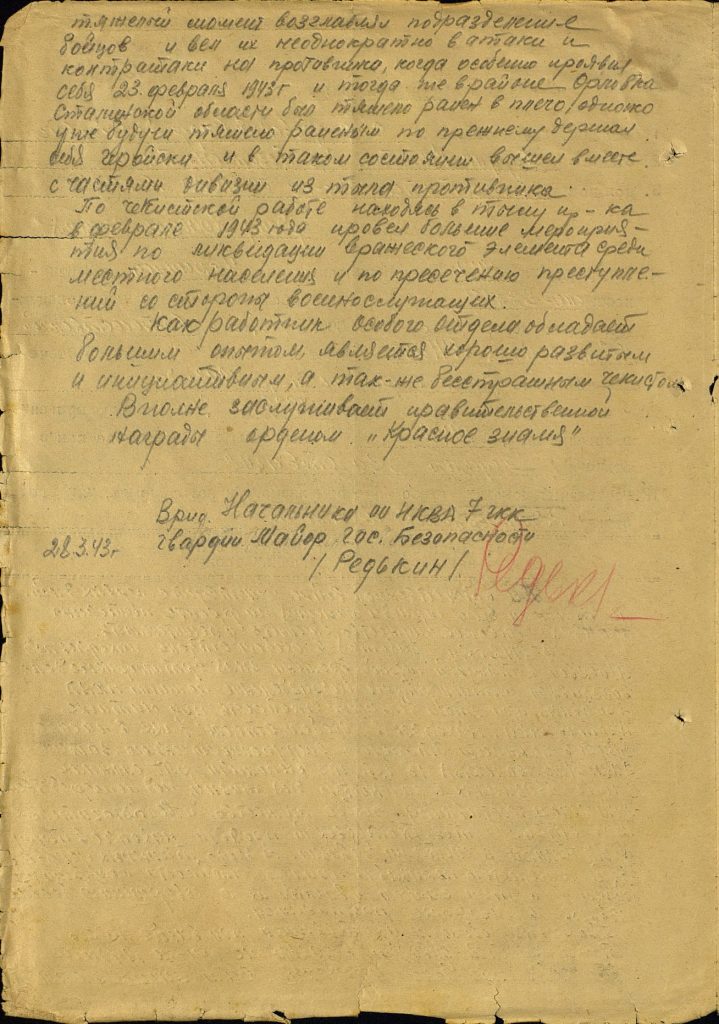 тяжелый момент возглавлял подразделение
бойцов и вел их неоднократно в атаки и
контратаки на противника, когда особенно проявил
себя 23 февраля 1943 г и тогда же в районе Орловка
Сталинской области был тяжело ранен в плечо, однако
уже будучи тяжело раненым по прежнему держал
себя геройски и в таком состоянии вышел вместе
с частями дивизии из тыла противника.
По чекистской работе находясь в тылу пр-ка
в феврале 1943 года провел большие мероприя-
тия по ликвидации вражеского элемента среди
местного населения и по пресечению преступле-
ний со стороны военнослужащих.
Как работник особого отдела обладает
большим опытом, является хорошо развитым
и инициативным, а так-же бесстрашным чекистом.
Вполне заслуживает правительственной
награды орденом "Красное знамя"
Врид. Начальника оо НКВД 7 гкк
гвардии Майор гос. Безопасности
28.3.43г
/Редькин/.